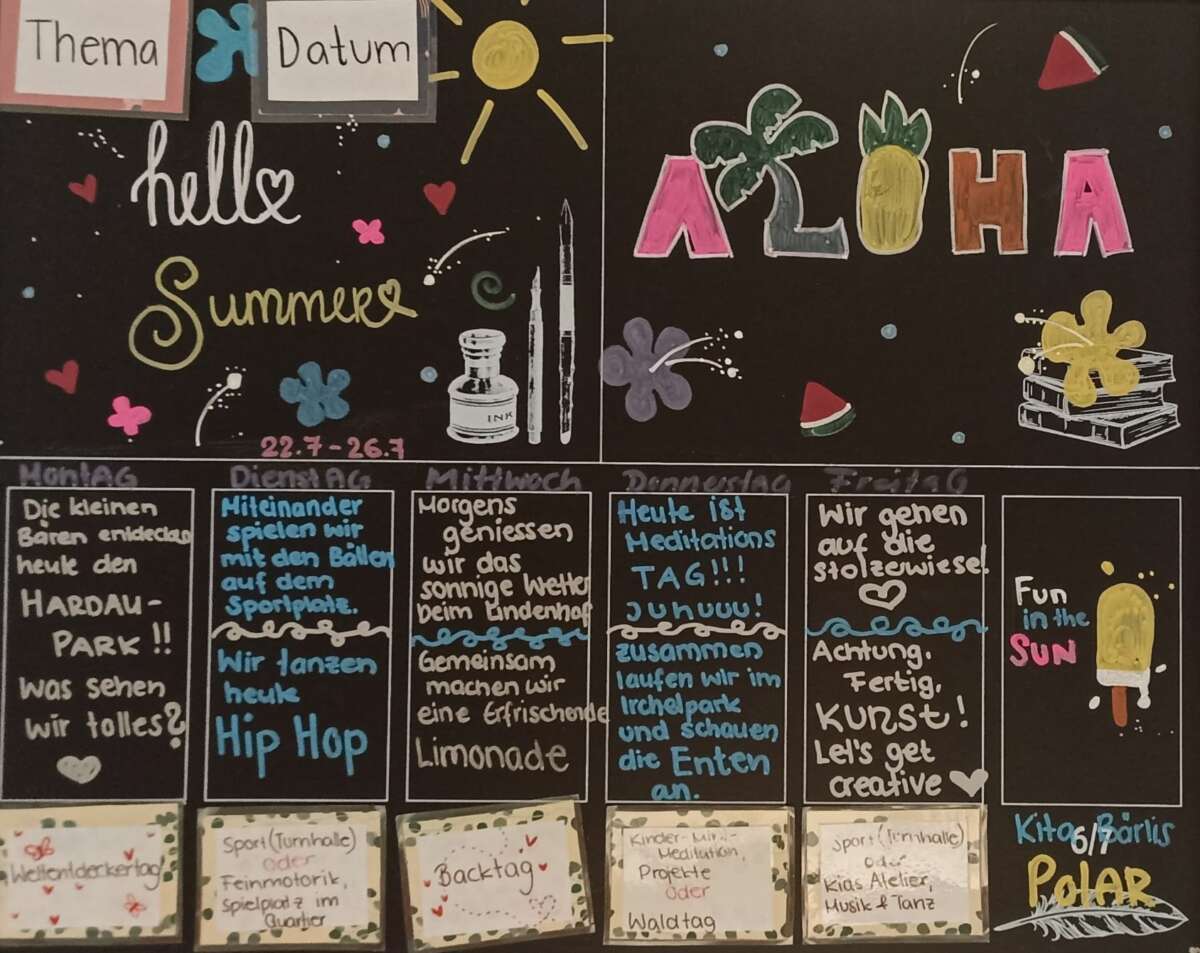 Thema
Datum
hello
Summer
ALOHA
INK
22.7-26.7
Montag
Die kleinen
Bären entdecken
heute den
HARDAU-
PARK!!
Was sehen
wir tolles?
Dienstag
Miteinander
spielen wir
mit den Bällen
auf dem
Sportplatz.
Wir tanzen
heute
Hip Hop
Mittwoch
Morgens
geniessen
wir das
sonnige Wetter
beim Lindenhof
Gemeinsam
machen wir
eine Erfrischende
Limonade
Donnerstag
Heute ist
Meditations
TAG!!!
Juhuuu!
zusammen
laufen wir im
Irchelpark
und schauen
die Enten
an.
Freitag
Wir gehen
auf die
Stolzewiese!
Achtung,
Fertig,
KUNST!
Let's get
creative
Fun
in the
SUN
Weltentdeckertag
Sport (Turnhalle)
oder
Feinmotorik,
Spielplatz im
Quartier
Backtag
Kinder-Mini-
Meditation,
Projekte
oder
Waldtag
Sport (Turnhalle)
oder
Kids Atelier,
Musik & Tanz
Kita Bärlis
6/7
POLAR